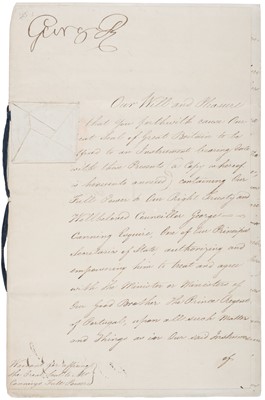 George R
Our Will and Pleasure
is that you forthwith cause Our
Great Seal of Great Britain to be
affixed to an Instrument bearing date
with these Presents (a Copy whereof
is hereunto annexed) containing Our
Full Power to Our Right Trusty and
Wellbeloved Councillor George
Canning Esquire, One of Our Principal
Secretaries of State authorizing and
empowering him to treat and agree
with the Minister or Ministers of
Our Good Brother The Prince Regent
of Portugal, upon all such Matters
and Things as in Our said Instrument
of.
Warrant for affixing
the Great Seal to Mr
Canning's Full Power